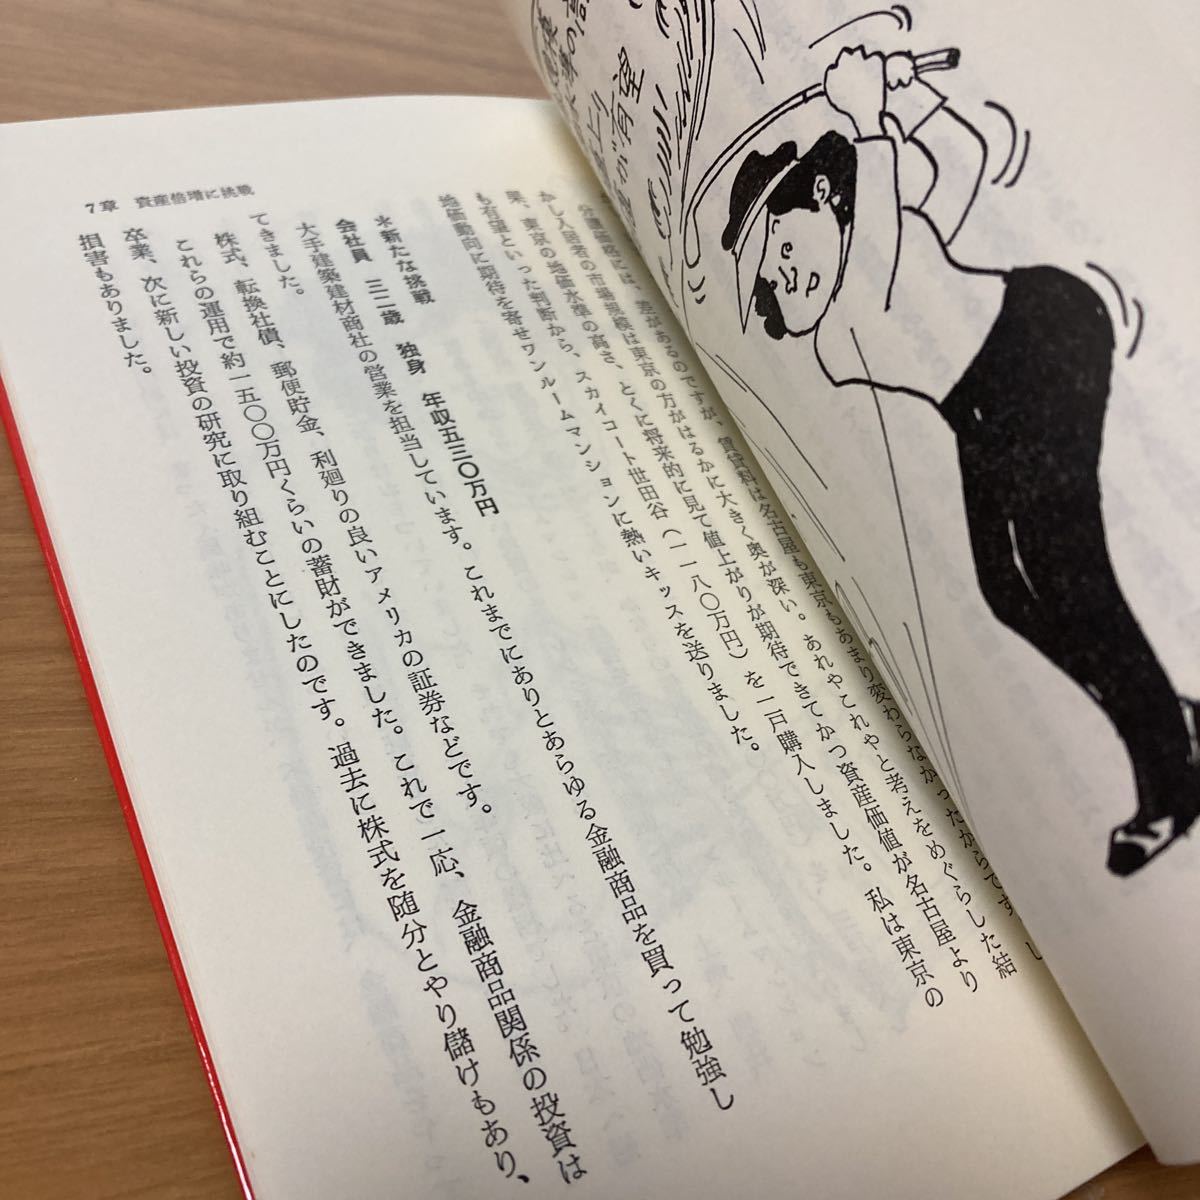 分譲価格には、差があるのですが、賃貸料は名古屋も東京もあまり変わらなかったからです。し
かし入居者の市場規模は東京の方がはるかに大きく奥が深い。あれやこれやと考えをめぐらした結
果、東京の地価水準の高さ、とくに将来的に見て値上がりが期待できてかつ資産価値が名古屋より
も有望といった判断から、スカイコート世田谷（一一八〇万円）を一戸購入しました。私は東京の
地価動向に期待を寄せワンルームマンションに熱いキッスを送りました。
＊新たな挑戦
会社員　三二歳　独身　年収五三〇万円
大手建築建材商社の営業を担当しています。これまでにありとあらゆる金融商品を買って勉強し
てきました。
株式、転換社債、郵便貯金、利廻りの良いアメリカの証券などです。
これらの運用で約一五〇〇万円くらいの蓄財ができました。これで一応、金融商品関係の投資は
卒業、次に新しい投資の研究に取り組むことにしたのです。過去に株式を随分とやり儲けもあり、
損害もありました。
7章　資産倍増に挑戦